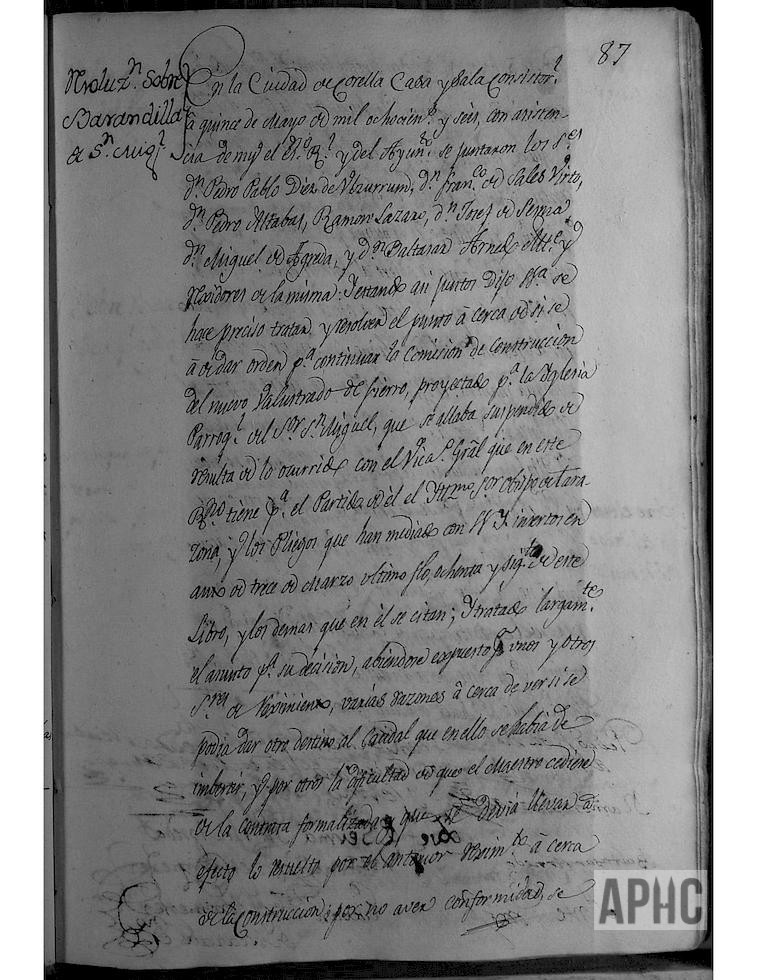 87
Resoluzn. sobre
Barandilla
de Sn. Migl.
En la Ciudad de Corella Casa y Sala Consistorl.
a quince de Mayo de mil ochocients. y seis, con asisten-
cia de mi el Sno. Rl. y del Ayunto. se juntaron los Ses.
Dn. Pedro Pablo Diez de Ulzurrum, Dn. Franco. de Sales Virto,
Dn. Pedro Altabas, Ramon Lazaro, Dn. Josef de Sesma
Dn. Miguel de Agreda, y Dn. Baltasar Arnedo Alle. y
Rexidores de la misma: Y estando asi juntos Dijo Sa. se
hace preciso tratar y resolver el punto à cerca de si se
à de dar orden pa. continuar la Comision de Construccion
del nuevo Valustrado de fierro, proyectado pa. la Yglesia
Parroql. del Sor. Sn. Miguel, que se allaba suspendido de
resulta de lo ocurrido con el Vico. Gral que en este
Rno. tiene pa. el Partido de él el Yllmo. Sor. Obispo de Tara-
zona, y los Pliegos que han mediado con S. Y. insertos en
auto de trece de Marzo ultimo flo, ochenta y sigte. de este
Libro, y los demas que en él se citan; Y tratado largamte.
el asunto pa. su decision, abiendose expuesto pr. unos y otros
Sres. de Reximiento, varias razones à cerca de ver si se
podia dar otro destino al Caudal que en ello se habia de
imbertir, y por otros la dificultad de que el Maestro cediese
de la contrata formalizada, y que se devia llevar à
efecto lo resuelto por el anterior Reximto. à cerca
de la Construccion; por no aver conformidad, se
APHC